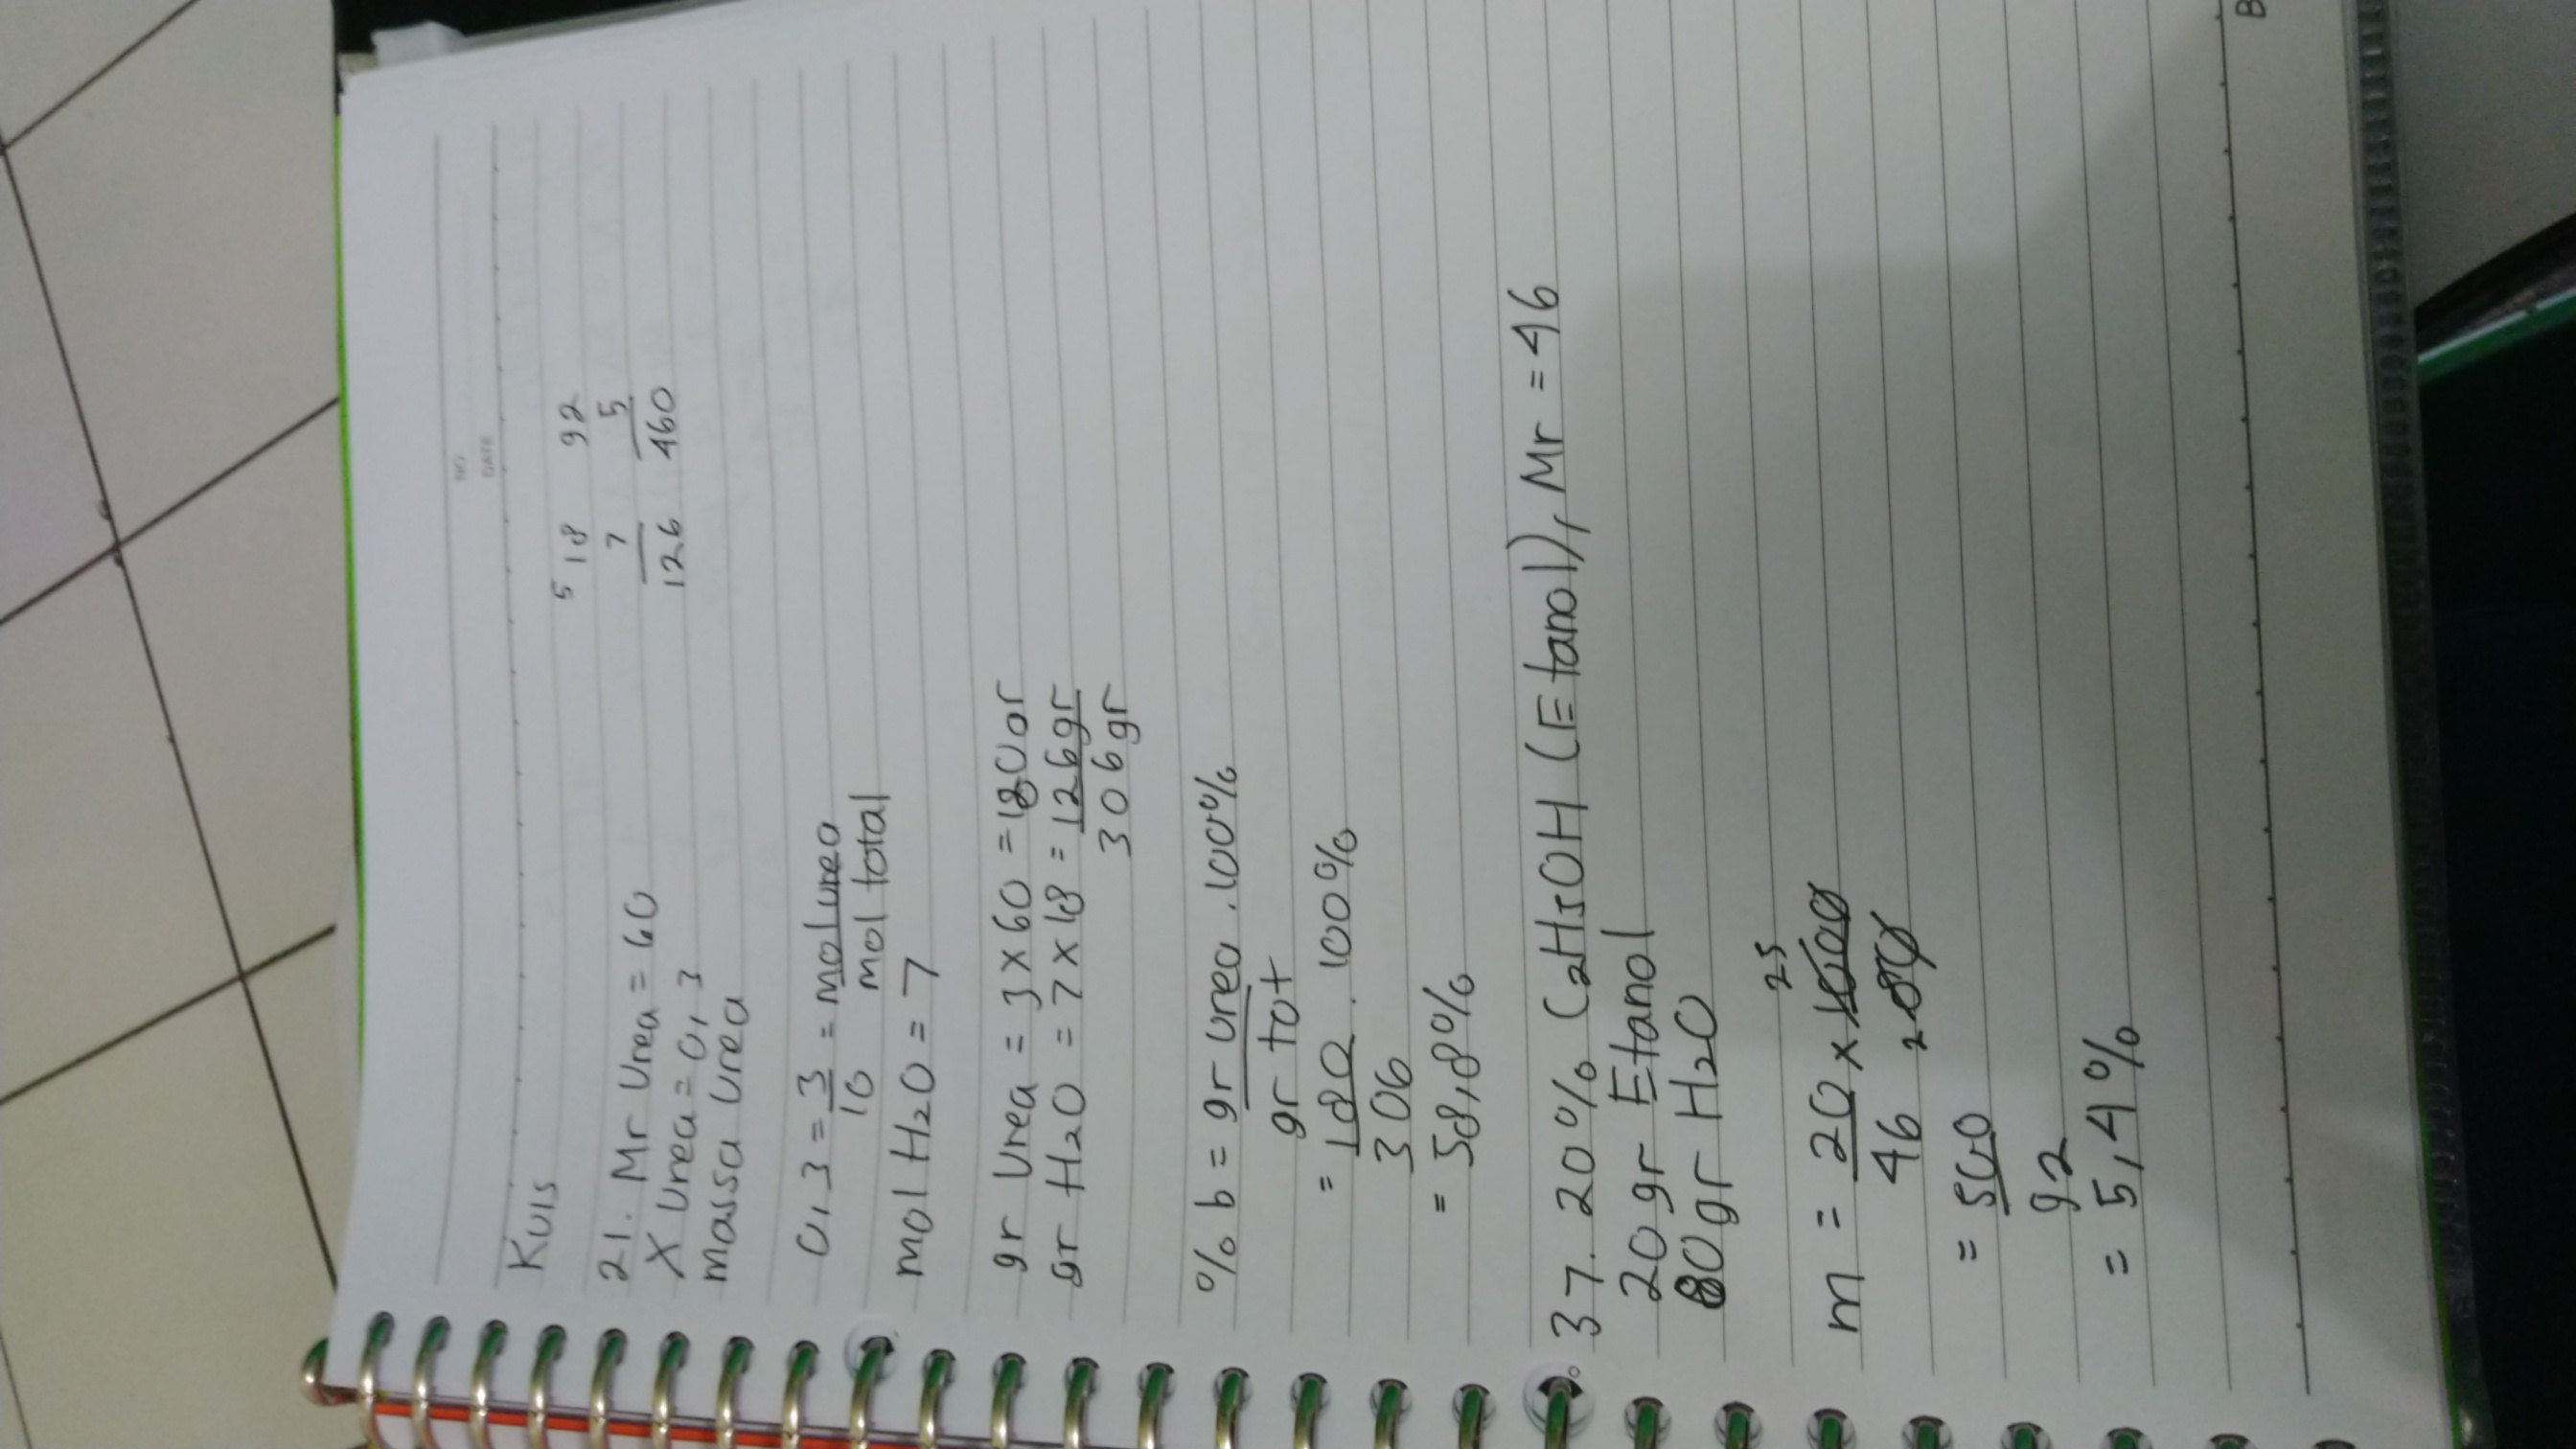 NO
DATE
Kuis
5 18 92
7 5
126 460
21. Mr Urea = 60
X Urea = 0,3
massa Urea
0,3 = 3/10 = mol urea/mol total
mol H2O = 7
gr Urea = 3 x 60 = 180 gr
gr H2O = 7 x 18 = 126 gr
306 gr
% b = gr urea/gr tot . 100%
= 180/306 . 100%
= 58,8%
37. 20% C2H5OH (Etanol), Mr = 46
20 gr Etanol
80 gr H2O
25
m = 20/46 x 1000/80
2
= 500/92
= 5,4%
B